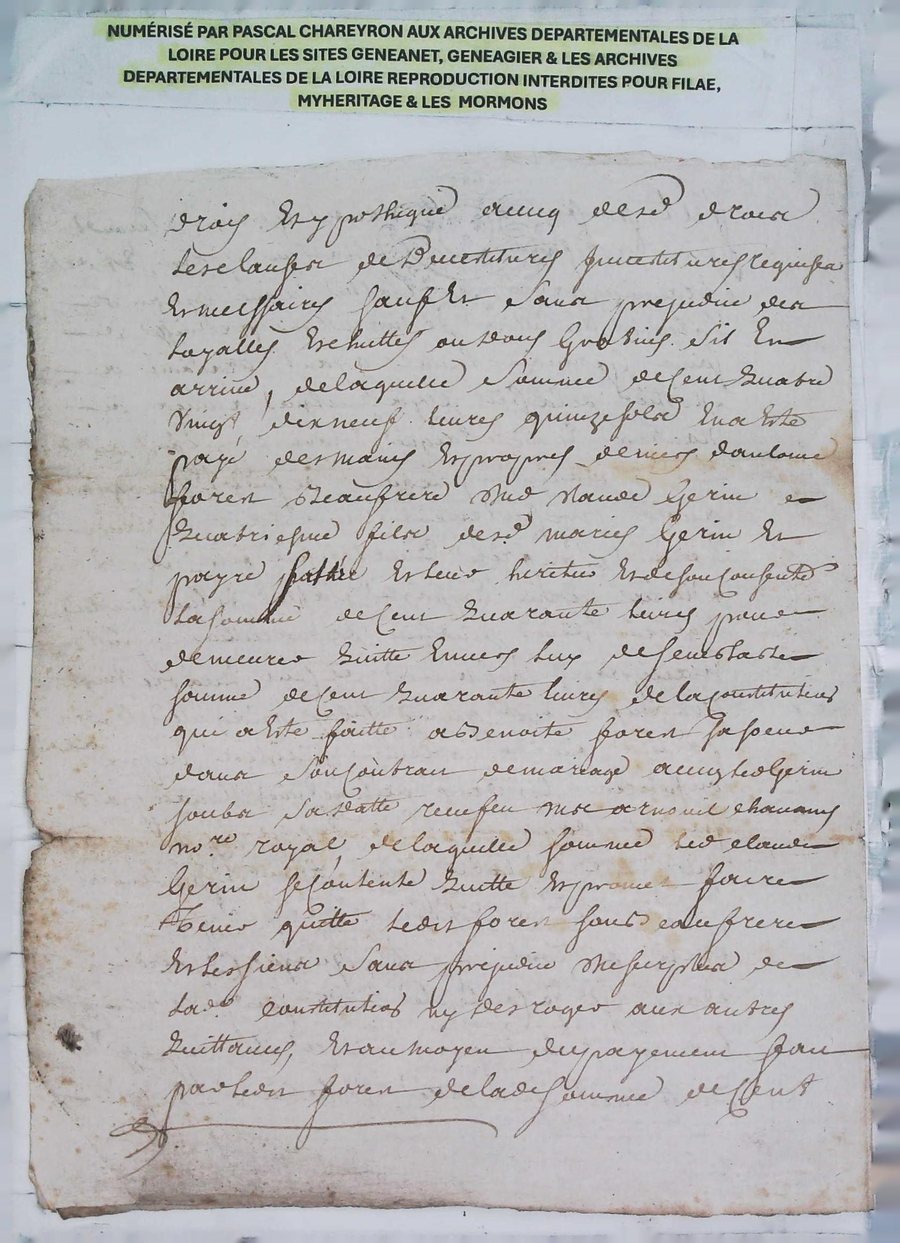 NUMÉRISÉ PAR PASCAL CHAREYRON AUX ARCHIVES DEPARTEMENTALES DE LA
LOIRE POUR LES SITES GENEANET, GENEAGIER & LES ARCHIVES
DEPARTEMENTALES DE LA LOIRE REPRODUCTION INTERDITES POUR FILAE,
MYHERITAGE & LES MORMONS
drois et ypotheque avecq desd droicts
les clauses de requises
et necessaires sauf et sans prejudice des
layalles sil en
arrive, de laquelle somme de cent quatre
vingt dix neuf livres quinze sols en a este
payé des mains et propres deniers d antoine
forest beaufrere dud Claude Gerin
quatriesme fils desd maries Gerin et
payre et leur heritier et de son consente
la somme de cent quarante livres pour
demeurer quitte envers luy de semblable
somme de cent quarante livres de la constitution
qui a este faitte a Benoite forest sa soeur
dans son contrat de mariage avecq led Gerin
soubs sa datte receu feu me arnoul
no.re royal, de laquelle somme led claude
Gerin se contente quitte et promet faire
tenir quitte ledit forest son beaufrere
et les siens sans prejudice du surplus de
lad.e constitution ny desroger aux autres
quittances, et au moyen du payement fait
par ledit forest de lad somme de cent